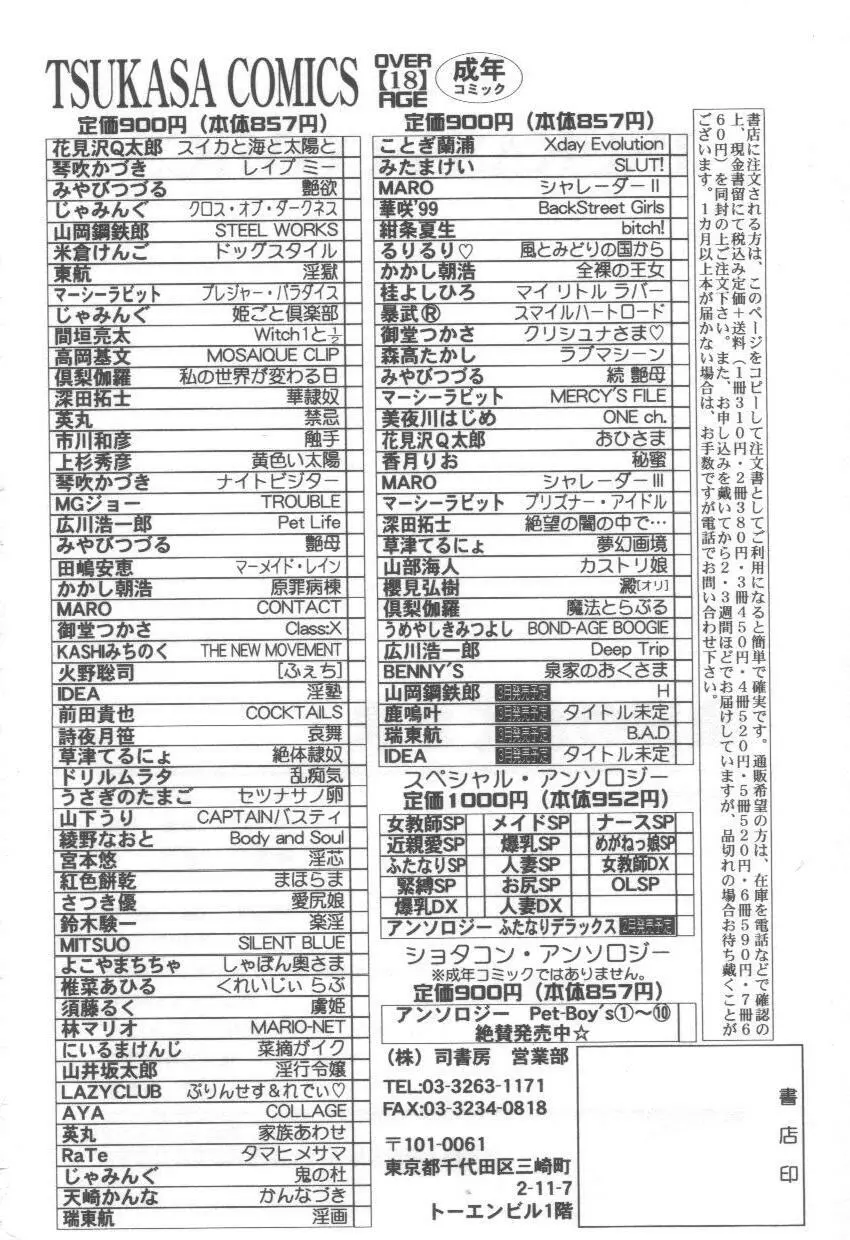 TSUKASA COMICS
OVER
【18】
AGE
成年
コミック
定価900円（本体857円）
花見沢Q太郎 スイカと海と太陽と
琴吹かづき レイプ ミー
みやびつづる 艶欲
じゃみんぐ クロス・オブ・ダークネス
山岡鋼鉄郎 STEEL WORKS
米倉けんご ドッグスタイル
東航 淫獄
マーシーラビット プレジャー・パラダイス
じゃみんぐ 姫ごと倶楽部
間垣亮太 Witch1と½
高岡基文 MOSAIQUE CLIP
倶梨伽羅 私の世界が変わる日
深田拓士 華隷奴
英丸 禁忌
市川和彦 触手
上杉秀彦 黄色い太陽
琴吹かづき ナイトビジター
MGジョー TROUBLE
広川浩一郎 Pet Life
みやびつづる 艶母
田嶋安恵 マーメイド・レイン
かかし朝浩 原罪病棟
MARO CONTACT
御堂つかさ Class:X
KASHIみちのく THE NEW MOVEMENT
火野聡司 [ふぇち]
IDEA 淫塾
前田貴也 COCKTAILS
詩夜月笹 哀舞
草津てるにょ 絶体隷奴
ドリルムラタ 乱痴気
うさぎのたまご セツナサノ卵
山下うり CAPTAINバスティ
綾野なおと Body and Soul
宮本悠 淫芯
紅色餅乾 まほらま
さつき優 愛尻娘
鈴木験一 楽淫
MITSUO SILENT BLUE
よこやまちちゃ しゃぼん奥さま
椎菜あひる くれいじぃ らぶ
須藤るく 虜姫
林マリオ MARIO-NET
にいるまけんじ 菜摘がイク
山井坂太郎 淫行令嬢
LAZYCLUB ぷりんせす&れでぃ♡
AYA COLLAGE
英丸 家族あわせ
RaTe タマヒメサマ
じゃみんぐ 鬼の杜
天崎かんな かんなづき
瑞東航 淫画
定価900円（本体857円）
ことぎ蘭浦 Xday Evolution
みたまけい SLUT!
MARO シャレーダーⅡ
華咲'99 BackStreet Girls
紺条夏生 bitch!
るりるり♡ 風とみどりの国から
かかし朝浩 全裸の王女
桂よしひろ マイ リトル ラバー
暴武Ⓡ スマイルハートロード
御堂つかさ クリシュナさま♡
森高たかし ラブマシーン
みやびつづる 続 艶母
マーシーラビット MERCY'S FILE
美夜川はじめ ONE ch.
花見沢Q太郎 おひさま
香月りお 秘蜜
MARO シャレーダーⅢ
マーシーラビット プリズナー・アイドル
深田拓士 絶望の闇の中で…
草津てるにょ 夢幻画境
山部海人 カストリ娘
櫻見弘樹 澱[オリ]
倶梨伽羅 魔法とらぶる
うめやしきみつよし BOND-AGE BOOGIE
広川浩一郎 Deep Trip
BENNY'S 泉家のおくさま
山岡鋼鉄郎 H
鹿鳴叶 タイトル未定
瑞東航 B.A.D
IDEA タイトル未定
スペシャル・アンソロジー
定価1000円（本体952円）
女教師SP メイドSP ナースSP
近親愛SP 爆乳SP めがねっ娘SP
ふたなりSP 人妻SP 女教師DX
緊縛SP お尻SP OLSP
爆乳DX 人妻DX
アンソロジー ふたなりデラックス
ショタコン・アンソロジー
※成年コミックではありません。
定価900円（本体857円）
アンソロジー Pet-Boy's①〜⑩
絶賛発売中☆
（株）司書房 営業部
TEL:03-3263-1171
FAX:03-3234-0818
〒101-0061
東京都千代田区三崎町
2-11-7
トーエンビル1階
書店印
書店に注文される方は、このページをコピーして注文書としてご利用になると簡単で確実です。通販希望の方は、在庫を電話などで確認の
上、現金書留にて税込み定価＋送料（1冊310円・2冊380円・3冊450円・4冊520円・5冊520円・6冊590円・7冊6
60円）を同封の上ご注文下さい。また、お申し込みを戴いてから2・3週間ほどでお届けしていますが、品切れの場合お待ち戴くことが
ございます。1カ月以上本が届かない場合は、お手数ですが電話でお問い合わせ下さい。